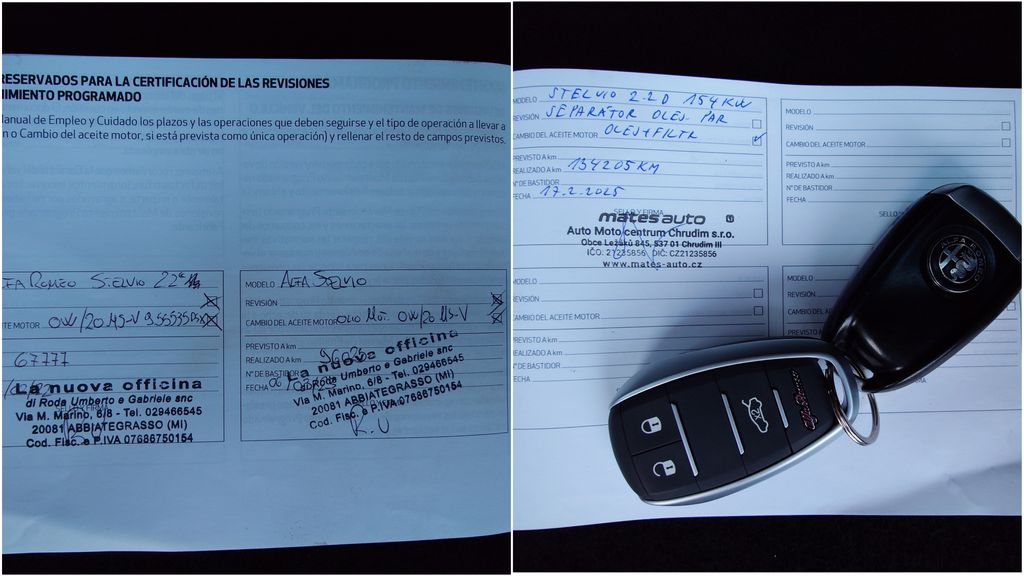 RESERVADOS PARA LA CERTIFICACIÓN DE LAS REVISIONES
IMIENTO PROGRAMADO
Manual de Empleo y Cuidado los plazos y las operaciones que deben seguirse y el tipo de operación a llevar a
n o Cambio del aceite motor, si está prevista como única operación) y rellenar el resto de campos previstos.
LFA ROMEO STELVIO 22
TE MOTOR OW/20 MS-V
67777
La nuova officina
di Roda Umberto e Gabriele snc
Via M. Marino, 6/8 - Tel. 029466545
20081 ABBIATEGRASSO (MI)
Cod. Fisc. e P.IVA 07686750154
MODELO ALFA STELVIO
REVISIÓN
CAMBIO DEL ACEITE MOTOR OLIO MOT. OW/20 MS-V
PREVISTO A km
REALIZADO A km
N° DE BASTIDOR
FECHA
La nuova officina
di Roda Umberto e Gabriele snc
Via M. Marino, 6/8 - Tel. 029466545
20081 ABBIATEGRASSO (MI)
Cod. Fisc. e P.IVA 07686750154
R.U
MODELO STELVIO 2.2D 154KW
REVISIÓN SEPARÁTOR OLEJ- PAR
CAMBIO DEL ACEITE MOTOR OLEJ+FILTR
PREVISTO A km
REALIZADO A km 134205KM
N° DE BASTIDOR
FECHA 17.2.2025
SELLO Y FIRMA
mates auto
Auto Moto centrum Chrudim s.r.o.
Obce Ležáků 845, 537 01 Chrudim III
IČO: 21235856 DIČ: CZ21235856
www.mates-auto.cz
MODELO
REVISIÓN
CAMBIO DEL ACEITE MOTOR
PREVISTO A km
REALIZADO A km
N° DE BASTIDOR
FECHA
SELLO
MODELO
REVISIÓN
CAMBIO DEL ACEITE MOTOR
PREVISTO A km
REALIZADO A km
N° DE BASTIDOR
FECHA
MODELO
REVISIÓN
CAMBIO DE
PREVISTO A
ALFA ROMEO
X2
Alfa Romeo